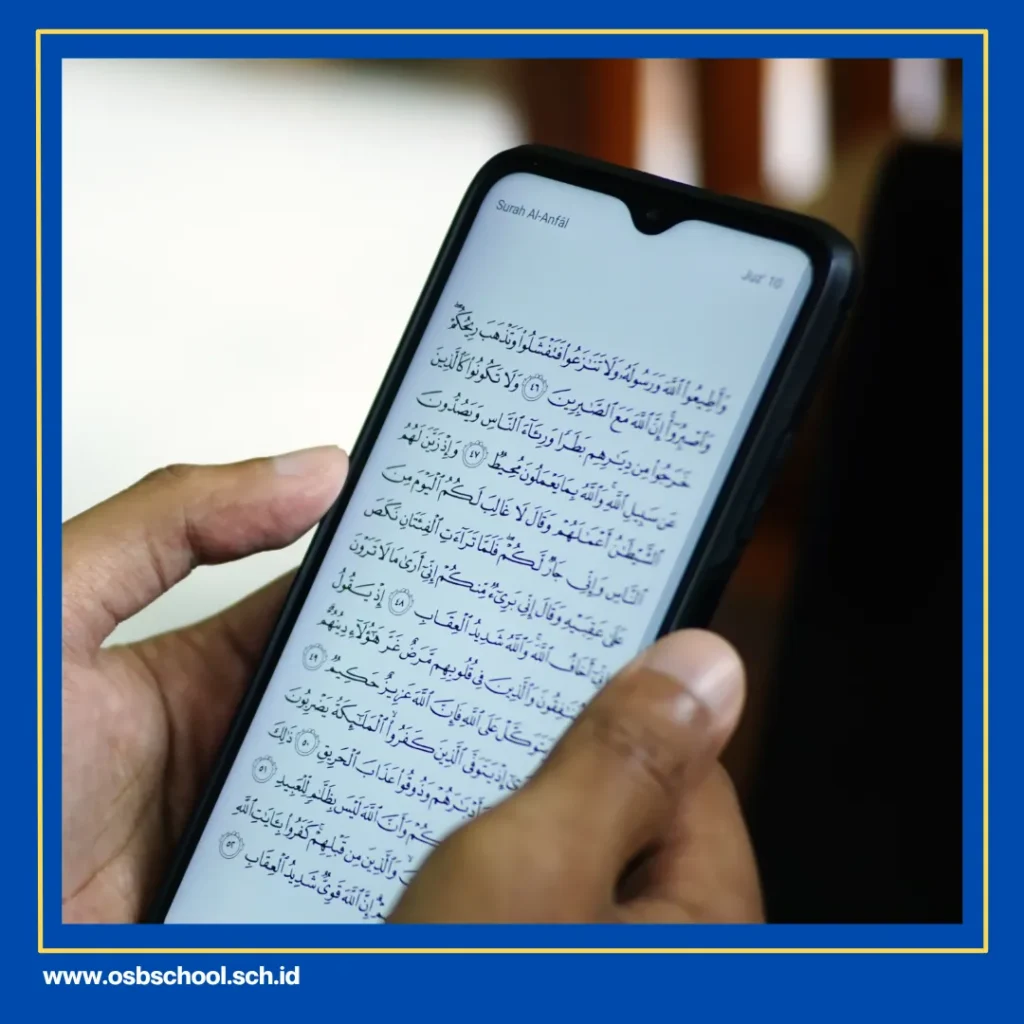 Surah Al-Anfāl
Juz' 10
وَأَطِيعُوا۟ ٱللَّهَ وَرَسُولَهُۥ وَلَا تَنَٰزَعُوا۟ فَتَفْشَلُوا۟ وَتَذْهَبَ رِيحُكُمْ ۖ
وَٱصْبِرُوٓا۟ ۚ إِنَّ ٱللَّهَ مَعَ ٱلصَّٰبِرِينَ ٤٦ وَلَا تَكُونُوا۟ كَٱلَّذِينَ
خَرَجُوا۟ مِن دِيَٰرِهِم بَطَرًا وَرِئَآءَ ٱلنَّاسِ وَيَصُدُّونَ
عَن سَبِيلِ ٱللَّهِ ۚ وَٱللَّهُ بِمَا يَعْمَلُونَ مُحِيطٌ ٤٧ وَإِذْ زَيَّنَ لَهُمُ
ٱلشَّيْطَٰنُ أَعْمَٰلَهُمْ وَقَالَ لَا غَالِبَ لَكُمُ ٱلْيَوْمَ مِنَ
ٱلنَّاسِ وَإِنِّى جَارٌ لَّكُمْ ۖ فَلَمَّا تَرَآءَتِ ٱلْفِئَتَانِ نَكَصَ
عَلَىٰ عَقِبَيْهِ وَقَالَ إِنِّى بَرِىٓءٌ مِّنكُمْ إِنِّىٓ أَرَىٰ مَا لَا تَرَوْنَ
أَخَافُ ٱللَّهَ ۚ وَٱللَّهُ شَدِيدُ ٱلْعِقَابِ ٤٨ إِذْ يَقُولُ
وَٱلَّذِينَ فِى قُلُوبِهِم مَّرَضٌ غَرَّ هَٰٓؤُلَآءِ دِينُهُمْ ۗ
عَلَى ٱللَّهِ فَإِنَّ ٱللَّهَ عَزِيزٌ حَكِيمٌ ٤٩
إِذْ يَتَوَفَّى ٱلَّذِينَ كَفَرُوا۟ ۙ ٱلْمَلَٰٓئِكَةُ يَضْرِبُونَ
وَأَدْبَٰرَهُمْ وَذُوقُوا۟ عَذَابَ ٱلْحَرِيقِ ٥٠ ذَٰلِكَ
وَأَنَّ ٱللَّهَ لَيْسَ بِظَلَّٰمٍ لِّلْعَبِيدِ ٥١
وَٱلَّذِينَ مِن قَبْلِهِمْ ۚ كَفَرُوا۟ بِـَٔايَٰتِ ٱللَّهِ
إِنَّ ٱللَّهَ قَوِىٌّ شَدِيدُ ٱلْعِقَابِ ٥٢
www.osbschool.sch.id